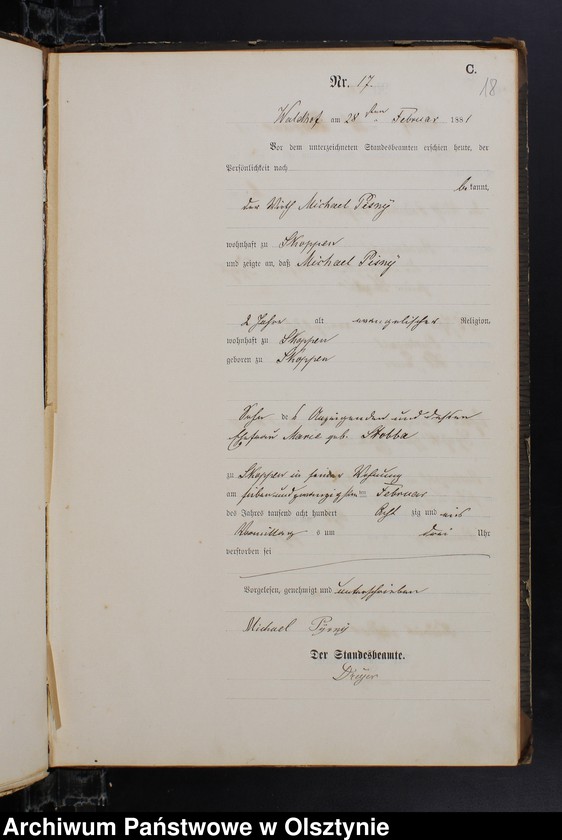 C.
18
Nr. 17.
Waldhof am 28 ten Februar 1881
Vor dem unterzeichneten Standesbeamten erschien heute, der
Persönlichkeit nach
bekannt,
der Wirth Michael Pisny
wohnhaft zu Skoppen
und zeigte an, daß Michael Pisny
2 Jahre alt evangelischer Religion,
wohnhaft zu Skoppen
geboren zu Skoppen
Sohn des Anzeigenden und dessen
Ehefrau Marie geb. Stobba
zu Skoppen in seiner Wohnung
am siebenundzwanzigsten Februar
des Jahres tausend acht hundert Acht zig und eins
Vormittag s um drei Uhr
verstorben sei
Vorgelesen, genehmigt und unterschrieben
Michael Pÿsnÿ
Der Standesbeamte.
Dreyer
Archiwum Państwowe w Olsztynie